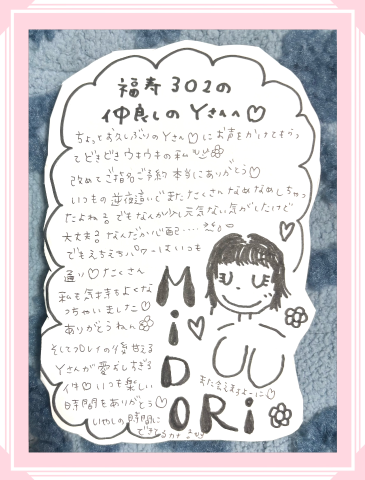 福寿302の
仲良しのYさんへ♡
ちょっとお久しぶりのYさん♡にお声をかけてもらっ
てどきどきウキウキの私
改めてご指名ご予約本当にありがとう♡
いつもの逆夜這いでまたたくさんなめなめしちゃっ
たよねる でもなんか少し元気ない気がしたけど
大丈夫る なんだか心配…
でもえちえちパワーはいつも
通り♡たくさん
私も気持ちよくな
っちゃいました♡
ありがとうねん
そしてプレイの後甘える
Yさんが愛おしすぎる
イ中♡いつも楽しい
時間をありがとう♡
いやしの時間に
できてるかナ
また会えますよーに♡
MiDORi